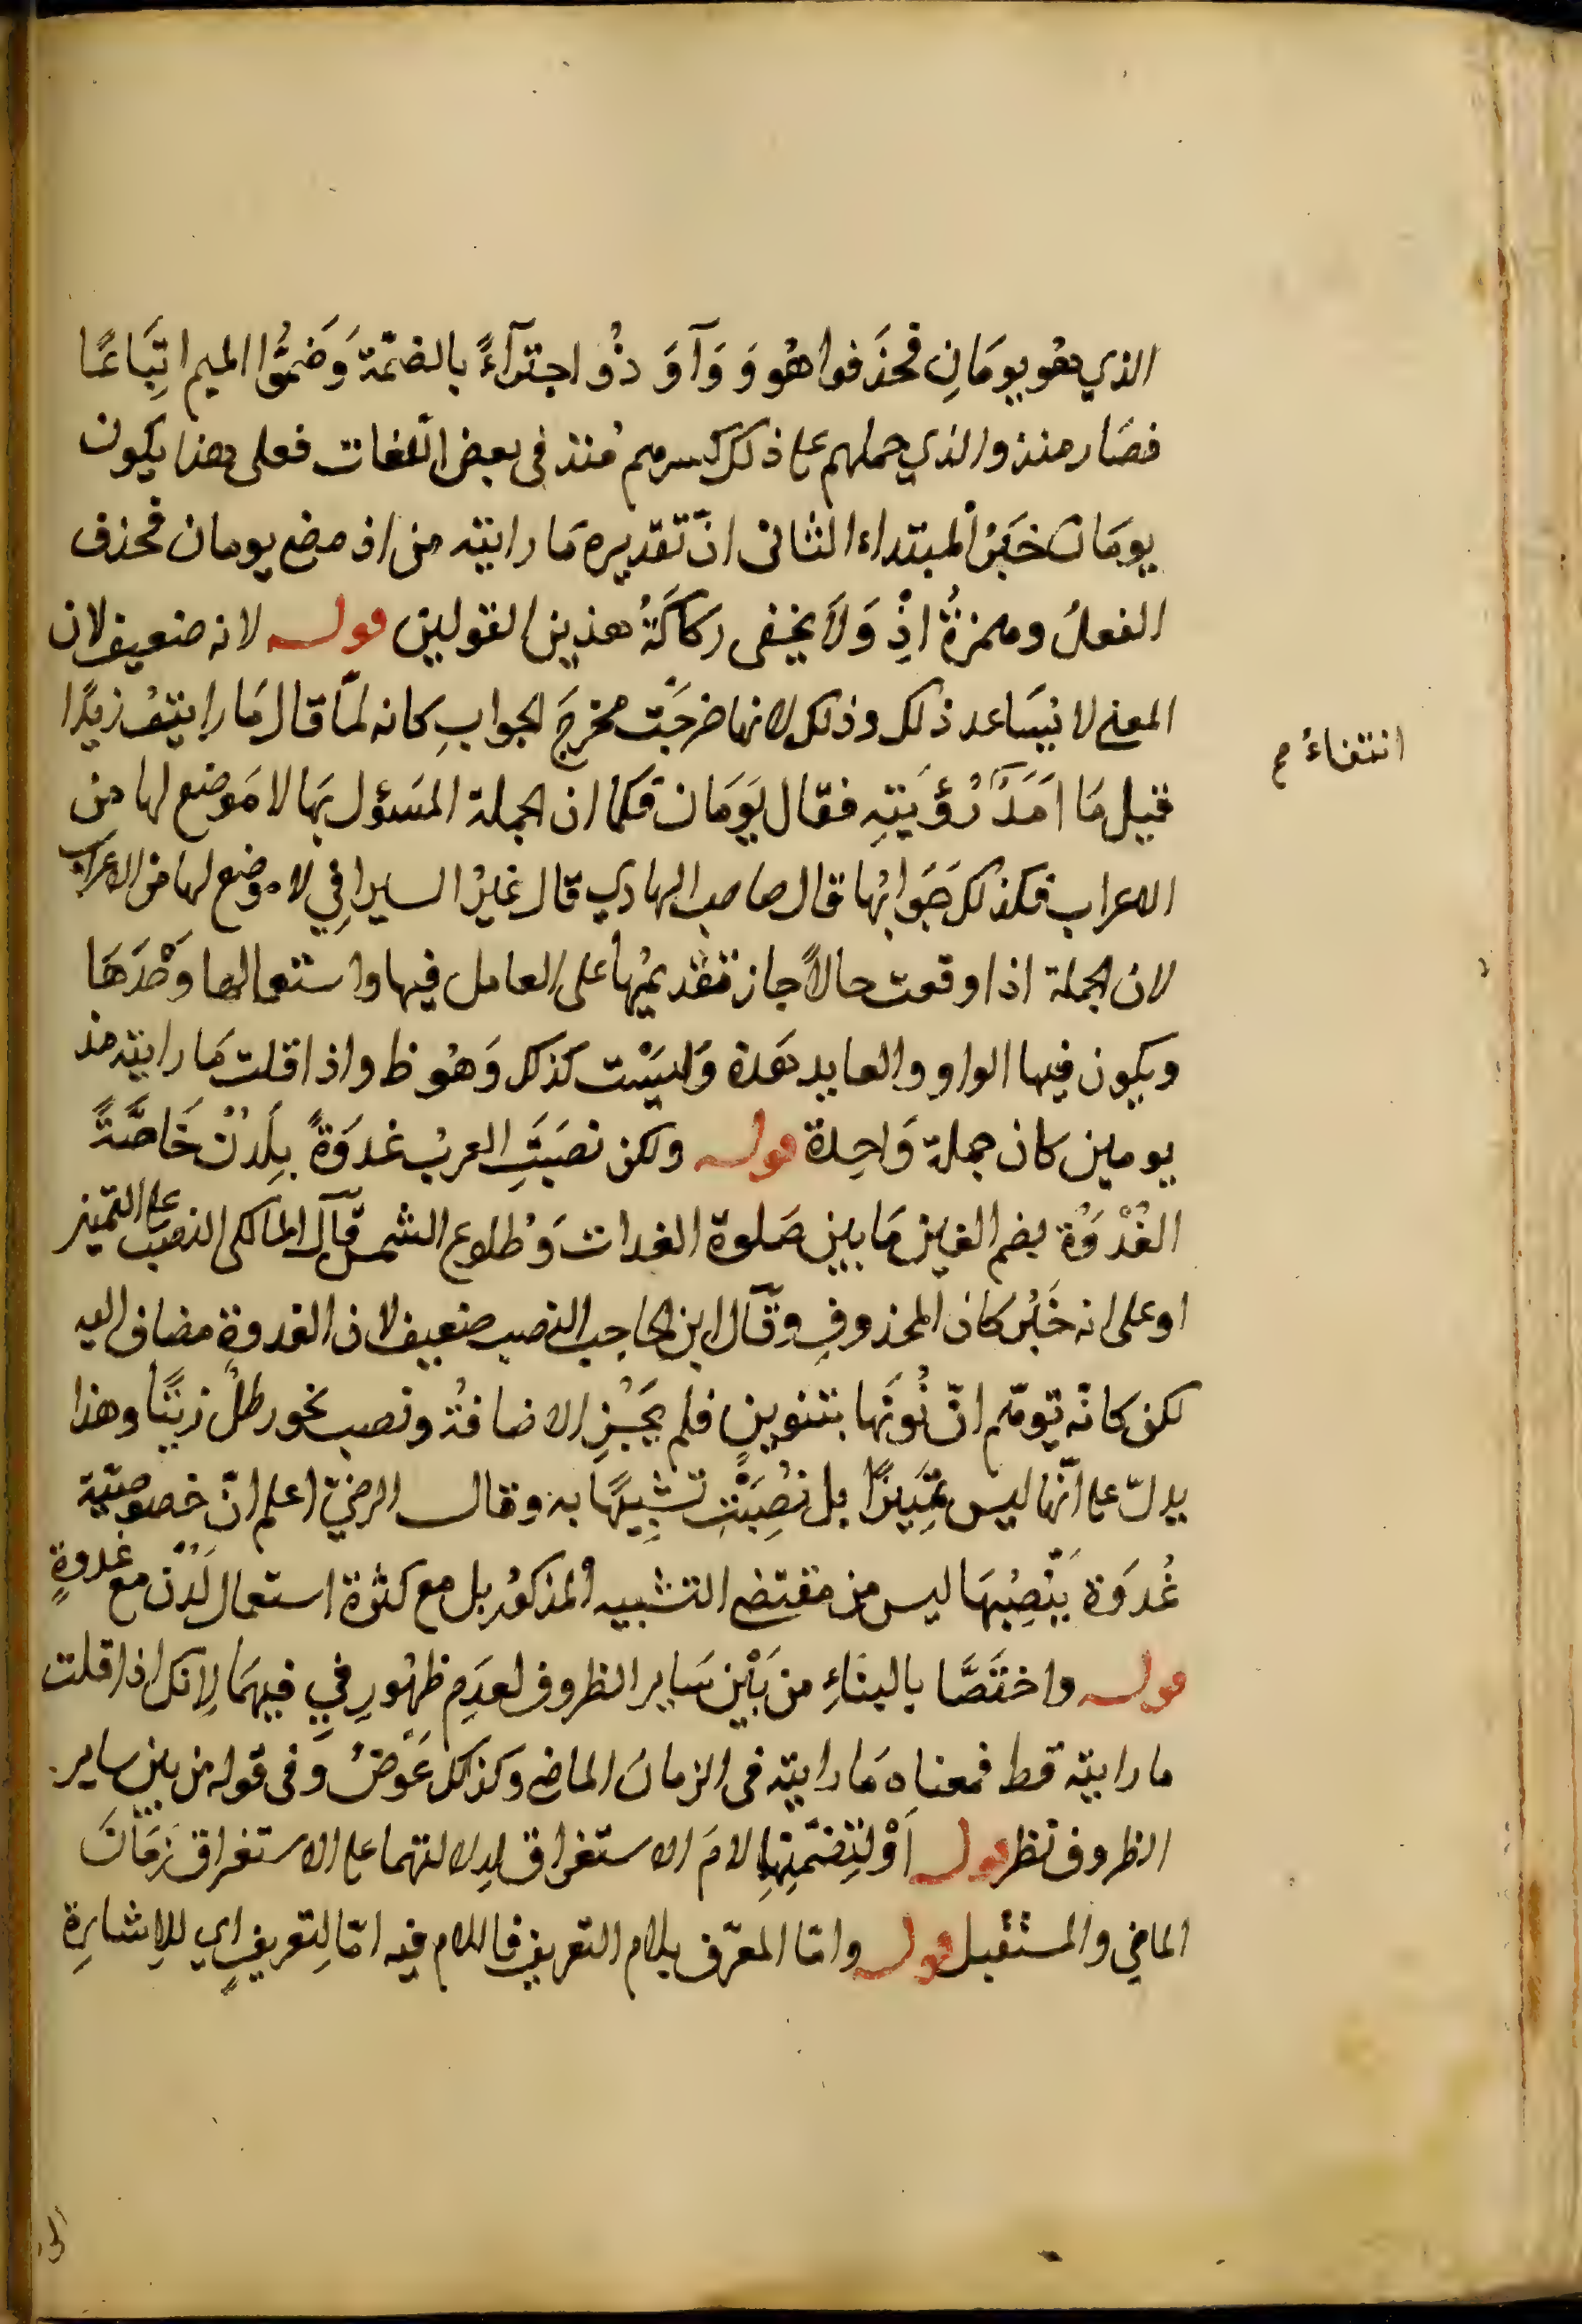 الذي هو يومَانِ فحُذَفوا هُووَ وَآوَ ذُو اجتزآءً بالضمّة وَضَمُّوا الميم اتِبَاعًا
فصَار منذ والذي حملهم على ذلك كسر ميم مُنذ فى بعض اللّغات فعلى هذا يكون
يومَان خَبَرُ المبتداء الثانى انّ تقديره مَا رايته من اذ مضى يومان فحذف
الفعلُ وهمزةُ اذِْ وَلَا يخفى ركاكَةُ هذين القولين قوله لانه ضعيف لان
المعنى لا يسَاعد ذلك وذلك لانها خرجَت مخرجَ الجوابِ كانه لمّا قال مَا رايتُ زيدًا
انتفاءُ صح
قيل مَا اَمَدُ رُؤيَتِهِ فقال يَوَمَان فكما ان الجملة المسَؤل بهَا لا مَوضع لها من
الاعراب فكذلك جَوابُها قال صاحب الهادي قال غيرُ السيرافِي لا موضع لها من الاعراب
لان الجملة اذا وقعت حالاً جاز تقديمُها على العامل فيها واستعمالها وَحْدَهَا
ويكون فيها الواو والعايد بعَدة وَليسَْت كذلك وَهُو ظ واذا قلت مَا رايته مذ
يومين كان جملة وَاحِدة قوله ولكن نصَبَتِ العربُ غدوَةً بِلَدُنْ خَاصَّةً
الغُدْوَةُ بضم الغين مَا بين صَلوة الغدات وَطُلوع الشمس قال المالكى النصبُ على التميز
او على انه خَبَرُ كان المحذوفِ وقال ابن الحاجب النصب ضعيف لان الغدوة مضاف اليه
لكن كانّه توهّم انّ نُونَها بتنوينٍ فلم يَجُزِ الاضافةُ ونصب نحو رطلٌ زيتًا وهذا
يدلّ على انّها ليس تميَيزًا بل نُصِبَتْ تشبِيهًا به وقال الرضىّ اعلم انّ خصوصيّة
غُدوَة بنَصِبْهَا ليس من مقتضى التشبيه المذكور بل مع كثرة استعمال لَدُنْ مع غدوةٍ
قوله واختَصَّا بالبنَاءِ من بَيْن سَاير الظروف لعدَمِ ظهُورِ فِي فيهمَا لانك اذا قلت
ما رايته قط فمعناه مَا رايته فى الزمان الماضى وكذلك عَوضُ وَفى قوله من بين ساير
الظروف نظر قوله اَوْ لتِضمّنِهِا لامَ الاستغراق لدلالتهما على الاستغراق زمَانَ
الماضي والمستقبل قوله وامّا المعرّف بلام التعريف فاللام فيه امّا لِتعريفٍ اي للإشارةِ
الى